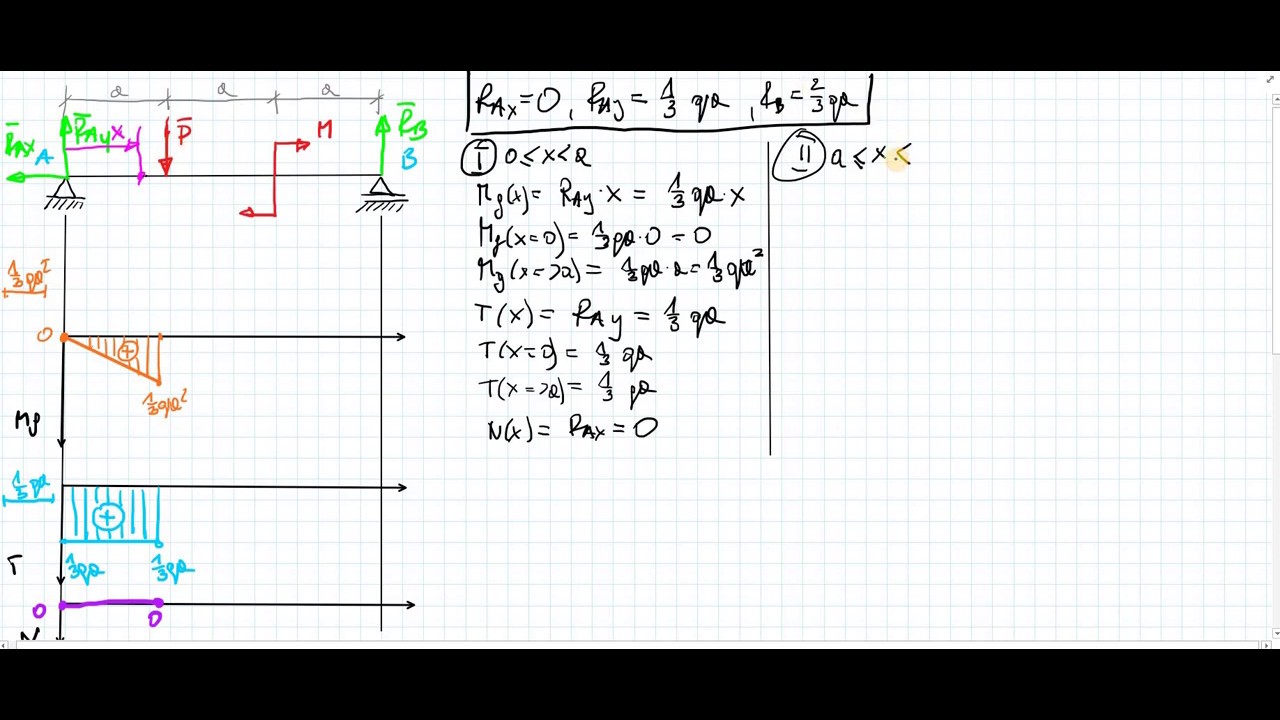 a a a
R̅Ax A R̅Ay X P̅ M R̅B B
RAx = 0 , RAy = 1/3 qa , RB = 2/3 qa
I 0 ≤ x < a
Mg(x) = RAy · x = 1/3 qa · x
Mg(x=0) = 1/3 qa · 0 = 0
Mg(x=>a) = 1/3 qa · a = 1/3 qa²
T(x) = RAy = 1/3 qa
T(x=0) = 1/3 qa
T(x=>a) = 1/3 qa
N(x) = RAx = 0
II a ≤ x <
1/3 qa²
0
+
1/3 qa²
Mg
1/3 qa
+
1/3 qa 1/3 qa
T
0 0
N